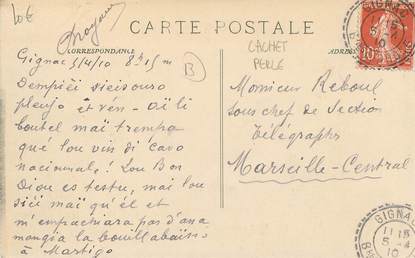 10€
CARTE POSTALE
CORRESPONDANCE
CACHET
PERLE
Gignac 5/4/10 8h 15m
B
Dempiéi sieis ouro
pleujo et vén - Ai li
boutel maï trempa
qué lou vin di cavo
nacionnal! Lou Bon
Diou es testu, mai lou
siéi mai qu'él et
m'empachara pas d'ana
mangia la bouillabaisso
à Martigo
Monsieur Reboul
sous chef de section
Télégraphes
Marseille-Central
GIGNAC
10
GIGNAC
11 15
5-4
10